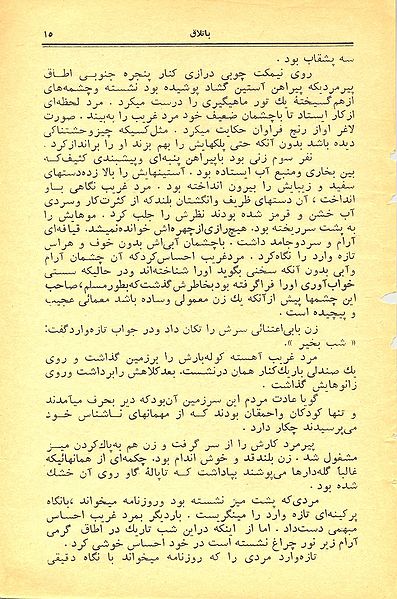 باتلاق ۱۵
سه بشقاب بود .
روی نیمکت چوبی درازی کنار پنجره جنوبی اطاق
پیرمردیکه پیراهن آستین گشاد پوشیده بود نشسته وچشمه‌های
ازهم‌گسیختهٔ یك تور ماهیگیری را درست میکرد . مرد لحظه‌ای
ازکار ایستاد تا باچشمان ضعیف خود مرد غریب را به‌بیند . صورت
لاغر اواز رنج فراوان حکایت میکرد . مثل‌کسیکه چیزوحشتناکی
دیده باشد بدون آنکه حتی پلکهایش را بهم بزند او را براندازکرد .
نفر سوم زنی بود باپیراهن پنبه‌ای وپیشبندی کثیف‌که
بین بخاری ومنبع آب ایستاده بود . آستینهایش را بالا زده‌دستهای
سفید و زیبایش را بیرون انداخته بود . مرد غریب نگاهی باو
انداخت ، آن دستهای ظریف وانگشتان بلندکه از کثرت‌کار وسردی
آب خشن و قرمز شده بودند نظرش را جلب کرد . موهایش را
به پشت سرریخته بود. هیچ‌رازی‌ازچهره‌اش خوانده‌نمیشد. قیافه‌ای
آرام و سردوجامد داشت . باچشمان آبی‌اش بدون خوف و هراس
تازه وارد را نگاه‌کرد . مردغریب احساس‌کردکه آن چشمان آرام
وآبی بدون آنکه سخنی بگوید اورا شناخته‌اند ودر حالیکه سستی
خواب‌آوری اورا فراگرفته بودبخاطرش گذشت‌که‌بطورمسلم،صاحب
این چشمها پیش ازآنکه یك زن معمولی وساده باشد معمائی عجیب
و پیچیده است .
زن بابی‌اعتنائی سرش را تکان داد ودر جواب تازه‌واردگفت:
« شب بخیر ».
مرد غریب آهسته کوله‌بارش را برزمین گذاشت و روی
یك صندلی باریك‌کنار همان درنشست، بعدکلاهش رابرداشت وروی
زانوهایش گذاشت .
گویا عادت مردم این سرزمین آن‌بودکه دیر بحرف میآمدند
و تنها کودکان واحمقان بودند که از مهمانهای ناشناس خود
می‌پرسیدند چکار دارد .
پیرمرد کارش را از سر گرفت و زن هم به‌پاك‌کردن میز
مشغول شد . زن بلندقد و خوش اندام بود، چکمه‌ای از همانهائیکه
غالباً گله‌دارها می‌پوشند بپاداشت که تابالهٔ گاو روی آن خشك
شده بود .
مردی‌که پشت میز نشسته بود وروزنامه میخواند ،بانگاه
پرکینه‌ای تازه وارد را مینگریست . باردیگر بمرد غریب احساس
مبهمی دست‌داد . اما از اینکه دراین شب تاریك در اطاق گرمی
آرام زیر نور چراغ نشسته است در خود احساس خوشی کرد .
تازه‌وارد مردی را که روزنامه میخواند با نگاه دقیقی